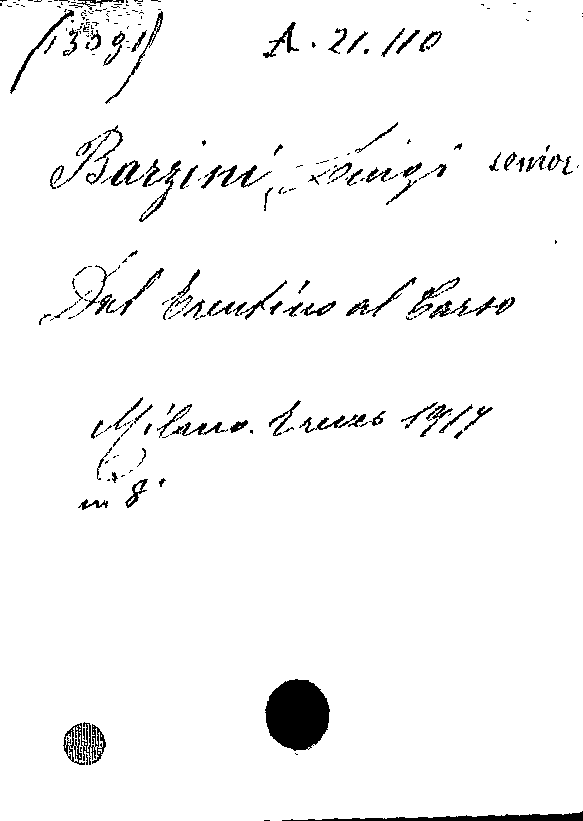 (13091) A. 21. 110
Barzini, Luigi senior
Dal Trentino al Carso
Milano. Treves 1917
in 8°